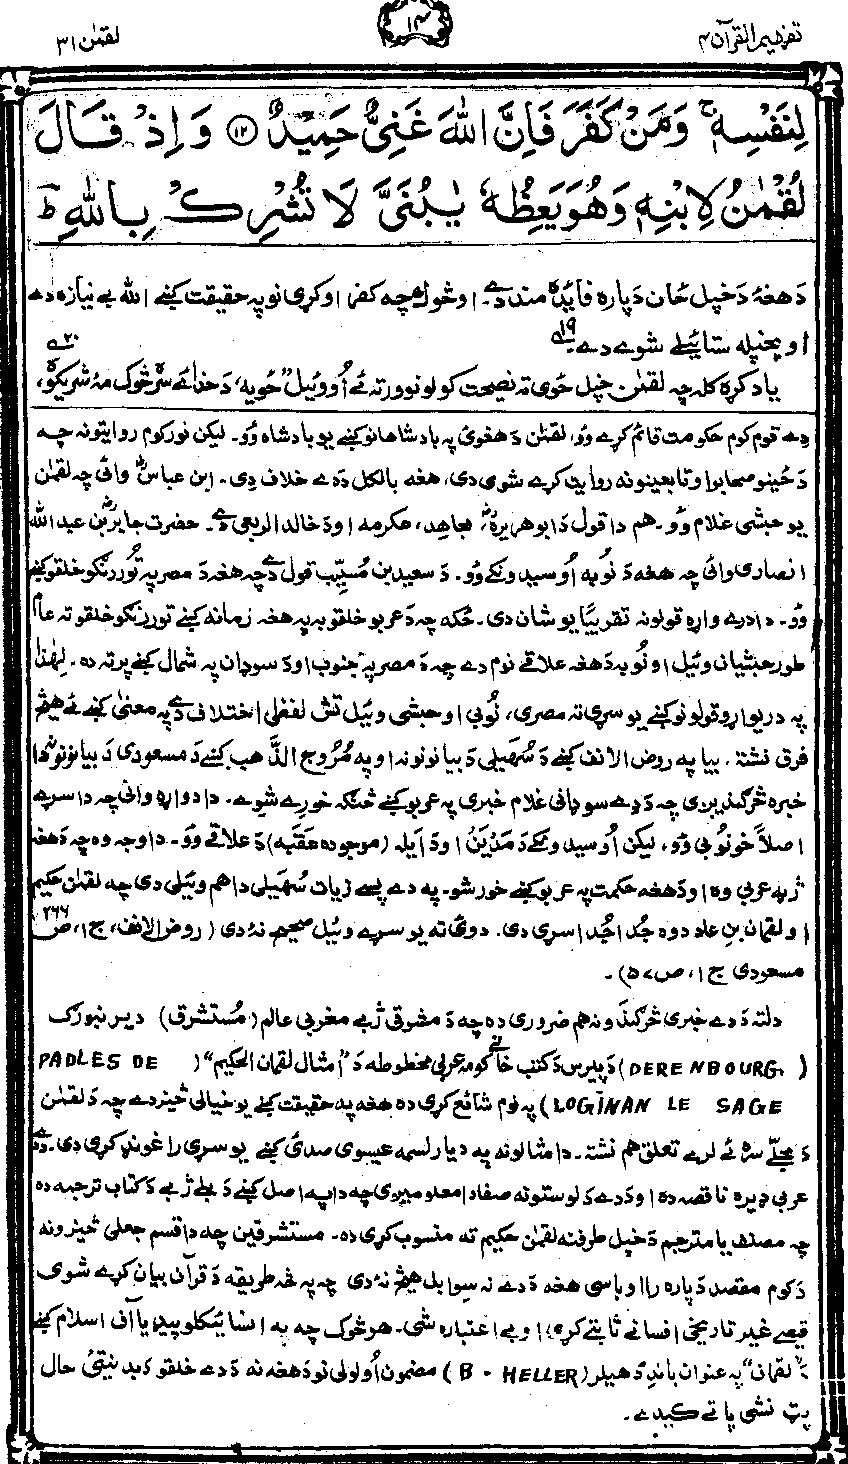 تفہیم القرآن ۴ ۱۴ لقمٰن ۳۱
لِنَفْسِهٖ ۚ وَمَنْ كَفَرَ فَاِنَّ اللّٰهَ غَنِیٌّ حَمِیْدٌ ﴿۱۲﴾ وَ اِذْ قَالَ
لُقْمٰنُ لِابْنِهٖ وَهُوَ یَعِظُهٗ یٰبُنَیَّ لَا تُشْرِكْ بِاللّٰهِ ؕ
دَ هغهٔ دَ خپل ځان دَ پاره فایٔده مند دے۔ اوڅوك چه کفر اوکړی نو په حقیقت کښے الله بے نیازه دے
او پخپله ستائیلے شوے دے۔ ۱۹ ۲۰
یاد کړه کله چه لقمٰن خپل ځوی ته نصیحت کولو نو ورته ئے اُووئیل "ځویه، دَ خدائے سره څوک مهٔ شریکوه،
دِے قوم کوم حکومت قائم کړے وُو، لقمٰن دَ هغوئ په بادشاهانو کښے یو بادشاه وُو۔ لیکن نور کوم روایتونه چه
دَ ځینو صحابوا و تابعینونه روایت کړے شوی دی، هغه بالکل دَ دے خلاف دِی۔ ابن عباسؓ وائی چه لقمٰن
یو حبشی غلام وُو۔ هم دا قول دَ ابوهریرهؓ، مجاهد، عکرمه اودَ خالد الربعی دے۔ حضرت جابرؓ بن عبد الله
انصاری وائی چه هغه دَ نُوبه اُوسیدونکے وُو۔ دَ سعید بن مُسیّب قول دے چه هغه دَ مصر په تُور رنګو خلقو کښے
وُو۔ دا درے واړه قولونه تقریبًا یو شان دی۔ ځکه چه دَ عربو خلقو به په هغه زمانه کښے تور رنګو خلقو ته عام
طور حبشیان وئیل او نُوبه دَ هغه علاقے نوم دے چه دَ مصر په جنوب اودَ سوډان په شمال کښے پرته ده۔ لِهٰذا
په دریوارو قولونو کښے یو سړی ته مصری، نُوبی او حبشی وئیل تش لفظی اختلاف دے په معنیٰ کښے ئے هیڅ
فرق نشتهٔ۔ بیا په روض الانف کښے دَ سُهیلی دَ بیانونونه او په مُرُوج الذَّهب کښے دَ مسعودی دَ بیانونو نه دا
خبره څرګندیږی چه دَ دِے سوډانی غلام خبری په عربو کښے څنګه خورے شوے۔ دا دواړه وائی چه دا سړے
اصلاً خو نُوبی وُو، لیکن اُوسیدونکے دَ مَدْیَنْ اودَ اَیله (موجوده عَقَبه) دَ علاقے وُو۔ دا وجه وه چه دَ هغه
ژبه عربی وه اودَ هغه حکمت په عربو کښے خور شو۔ په دے پسے زیات سُهیلی دا هم وئیلی دی چه لقمٰن حکیم
او لقمان بن عاد دوه جُدا جُدا سړی دی۔ دوئ ته یو سړے وئیل صحیح نهٔ دی (روض الانف، ج ۱، ص ۲۶۶
مسعودی ج ۱، ص ۵۷)۔
دلته دَ دے خبری څرګندَونه هم ضروری ده چه دَ مشرقی ژبے مغربی عالم (مُستشرق) دیرنبورک
(DERENBOURG) دَ پیرس دَ کتب خانے کومه عربی مخطوطه دَ "امثال لقمان الحکیم" (PADLES DE
LOGINAN LE SAGE) په نوم شائع کړی ده هغه په حقیقت کښے یو خیالی څیز دے چه دَ لقمٰن
دَ مجلّے سره ئے لرے تعلق هم نشته۔ دا مثالونه په دیارلسمه عیسوی صدئ کښے یو سړی راغونډ کړی دی۔ دَ دے
عربی ډیره ناقصه ده اودَ دے دَ لوستونه صفا دا معلومیږی چه دا په اصل کښے دَ بلے ژبے دَ کتاب ترجمه ده
چه مصنف یا مترجم دَ خپل طرفنه لقمٰن حکیم ته منسوب کړی ده۔ مستشرقین چه دا قسم جعلی څیزونه
دَ کوم مقصد دَ پاره راوباسی هغه دَ دے نه سوا بل هیڅ نهٔ دی چه په څه طریقه دَ قرآن بیان کړے شوی
قیصے غیر تاریخی افسانے ثابتے کړی او بے اعتباره شی۔ هر څوک چه په انسائیکلوپیډیا آف اسلام کښے
"لقمان" په عنوان باندِ دَ هیلر (B - HELLER) مضمون اُولولی نو دَ هغه نه دَ دے خلقو دَ بد نیتئ حال
پټ نشی پاتے کیدے۔